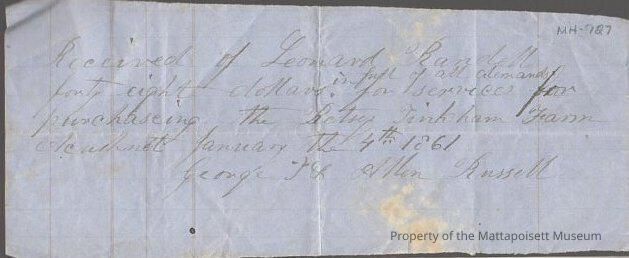 MH-727
Received of Leonard Randell
forty eight dollars in full of all demands for services for
purchasing the Tinkham Farm
Acushnet January the 4th 1861
George & Allen Russell
Property of the Mattapoisett Museum